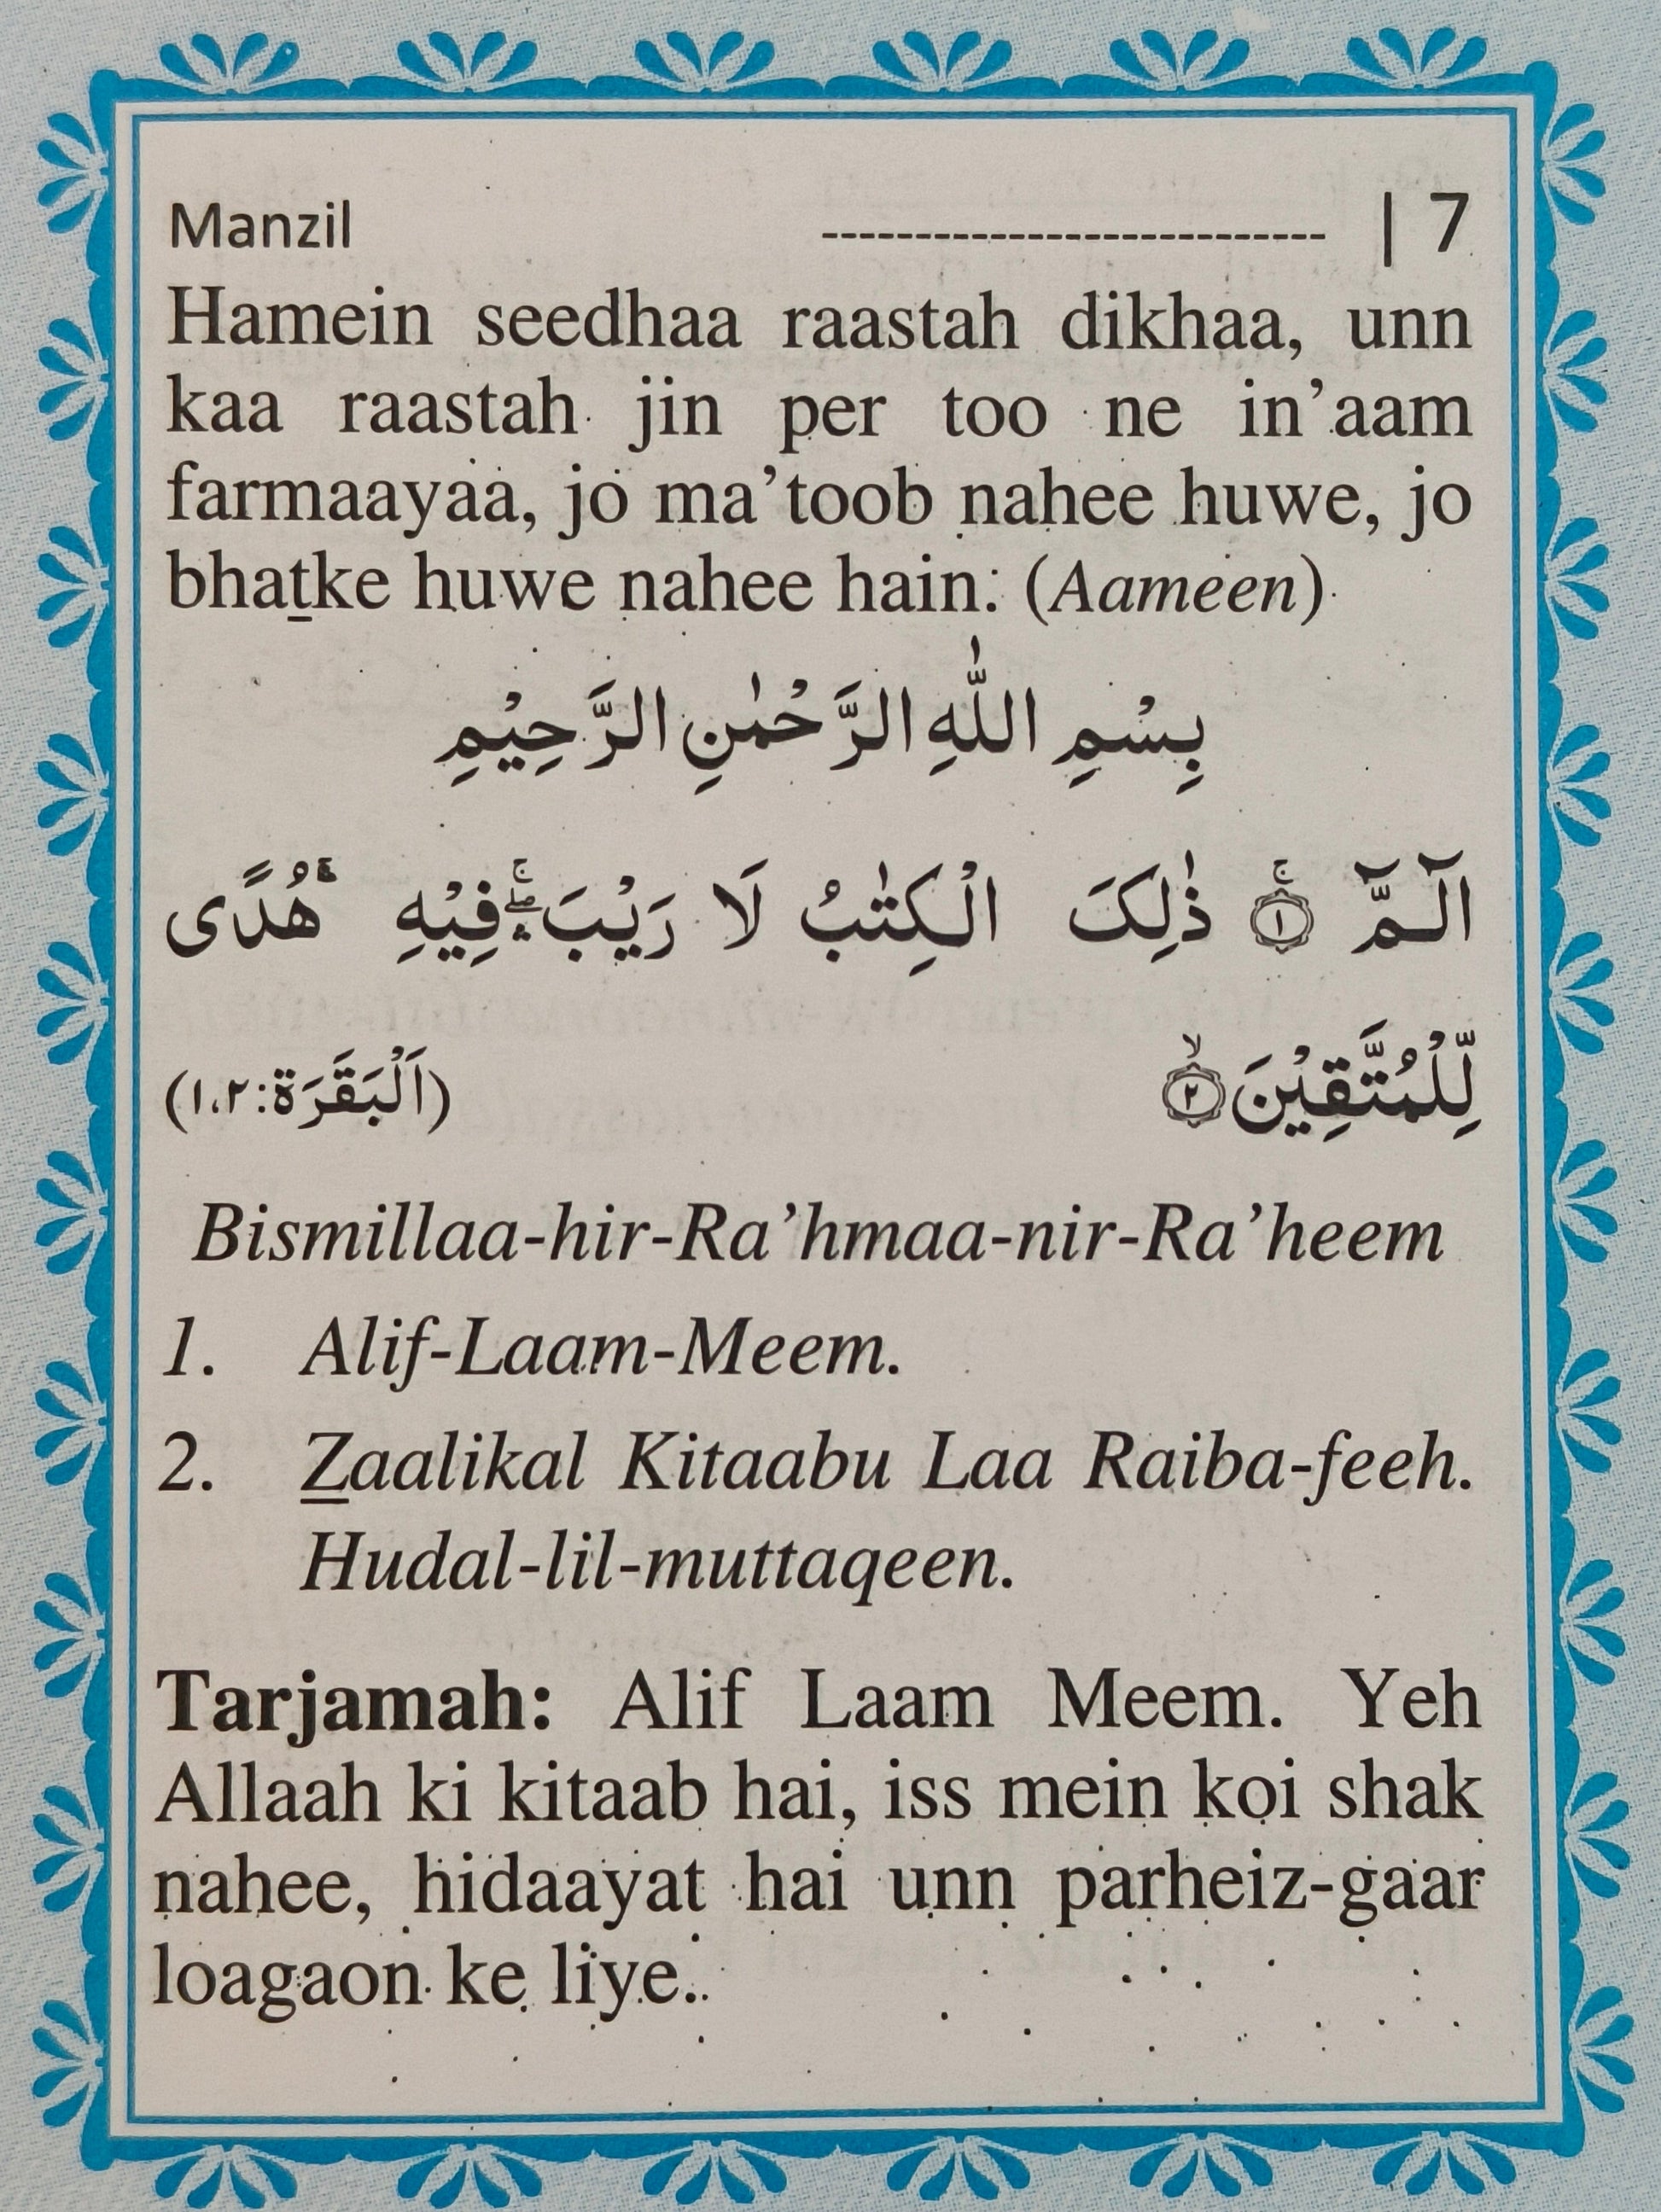 Manzil --------------------------- | 7
Hamein seedhaa raastah dikhaa, unn
kaa raastah jin per too ne in’aam
farmaayaa, jo ma’toob nahee huwe, jo
bhaṯke huwe nahee hain. (Aameen)
بِسْمِ اللّٰهِ الرَّحْمٰنِ الرَّحِيْمِ
الٓـمّٓ ۚ‏﴿۱﴾ ذٰلِكَ الْكِتٰبُ لَا رَيْبَ ۛۖۚ فِيْهِ ۛۚ هُدًى
لِّلْمُتَّقِيْنَ ۙ‏﴿۲﴾ (اَلْبَقَرَة:۱،۲)
Bismillaa-hir-Ra’hmaa-nir-Ra’heem
1. Alif-Laam-Meem.
2. Ẕaalikal Kitaabu Laa Raiba-feeh.
Hudal-lil-muttaqeen.
Tarjamah: Alif Laam Meem. Yeh
Allaah ki kitaab hai, iss mein koi shak
nahee, hidaayat hai unn parheiz-gaar
loagaon ke liye.